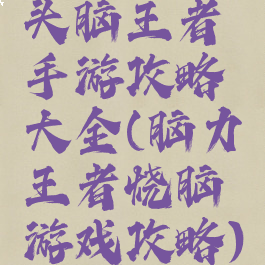 头脑王者
手游攻略
大全(脑力
王者烧脑
游戏攻略)